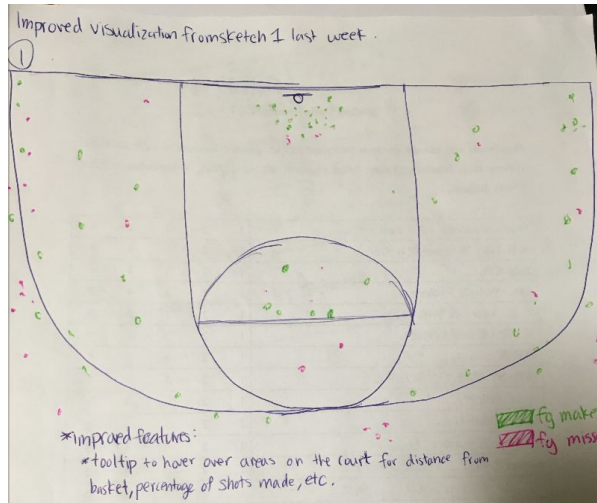 Improved visualization from sketch 1 last week.
1
fg make
fg miss
*improved features:
*tooltip to hover over areas on the court for distance from
basket, percentage of shots made, etc.